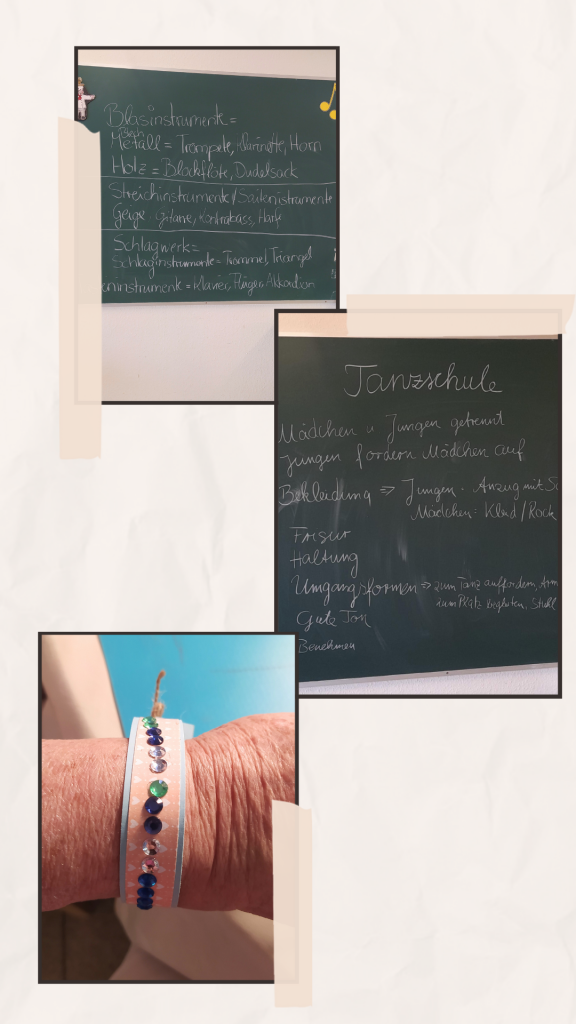 Blasinstrumente =
Blech
Metall = Trompete, Klarinette, Horn
Holz = Blockflöte, Dudelsack
Streichinstrumente/Saiteninstrumente
Geige Gitarre, Kontrabass, Harfe
Schlagwerk =
Schlaginstrumente = Trommel, Triangel
eninstrumente = Klavier, Flügel, Akkordion
Tanzschule
Mädchen u Jungen getrennt
Jungen fordern Mädchen auf
Bekleidung => Jungen - Anzug mit
Mädchen: Kleid / Rock
Frisur
Haltung
Umgangsformen => zum Tanz auffordern, Arm
zum Platz begleiten, Stuhl
Gute Ton
Benehmen